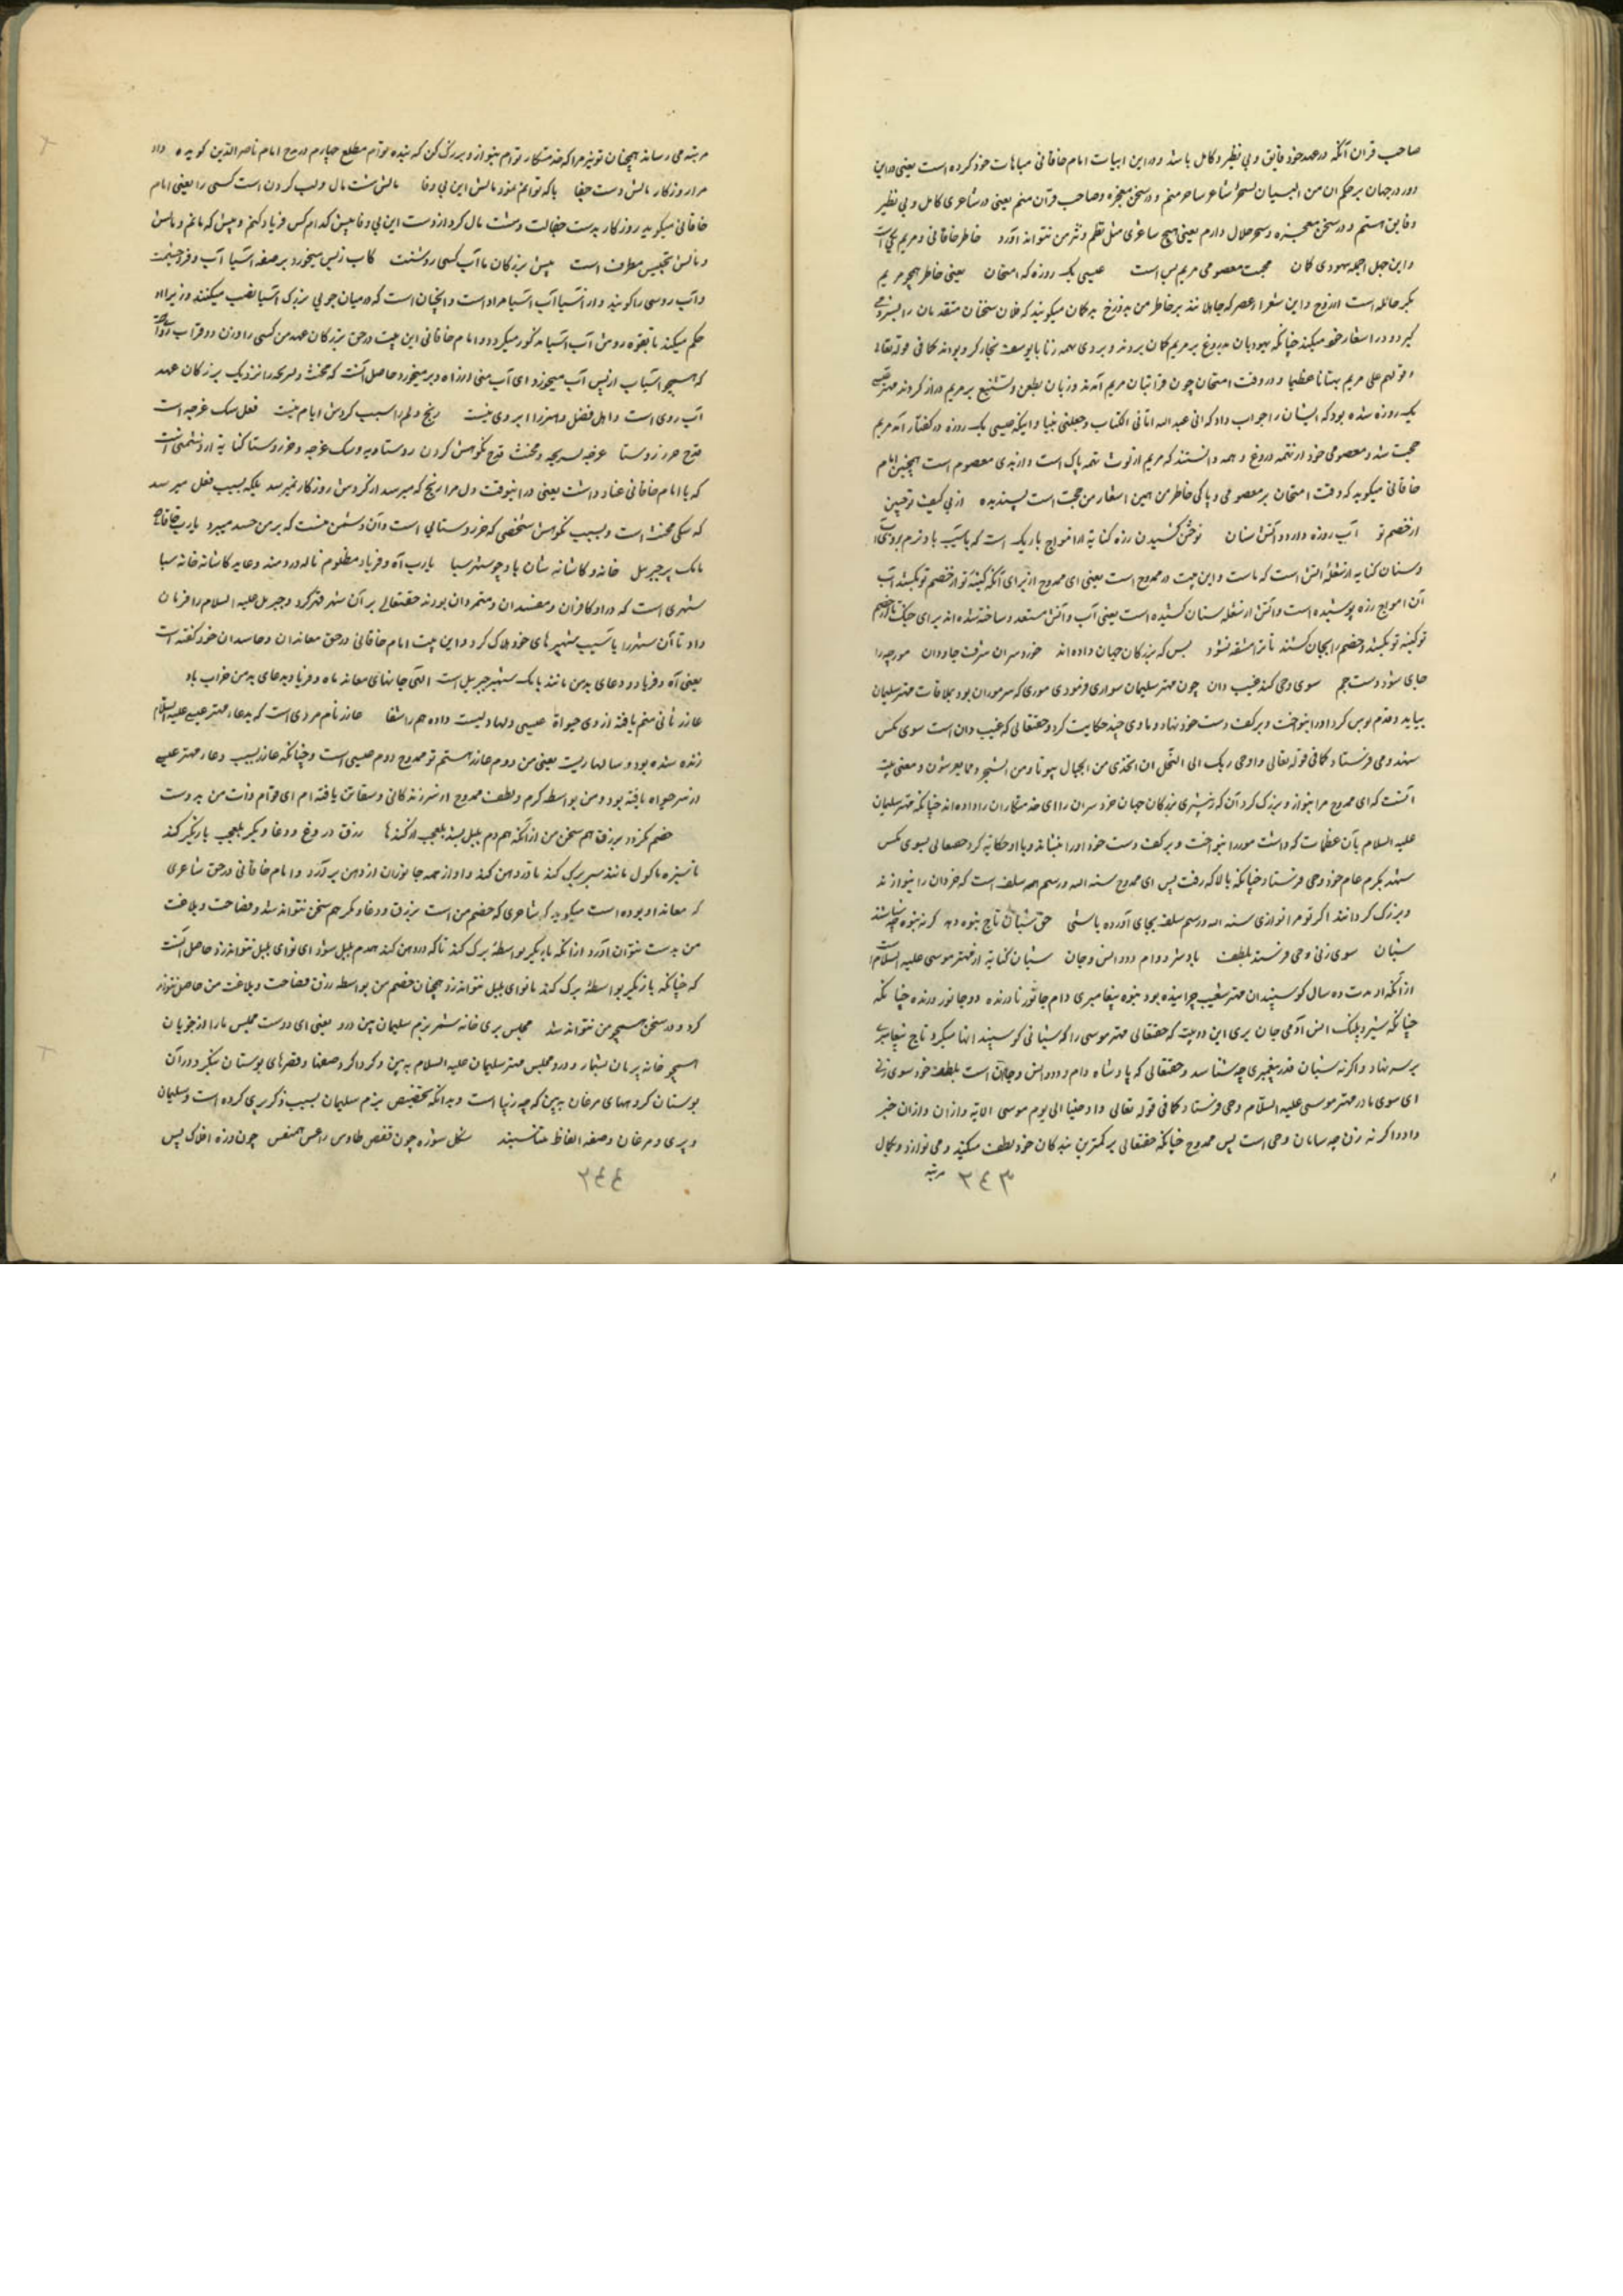 صاحب قران آنکه در عهد خود فایق و بی نظیر و کامل باشد و در این ابیات امام خاقانی مباهات خود کرده است یعنی در این
دور در جهان بر حکم ان من البیان لسحرا شاعر ساحر منم و در سخن معجزه و صاحب قرآن منم یعنی در شاعری کامل و بی نظیر
و فایق هستم و در سخن معجزه و سحر حلال دارم یعنی هیچ ساعری مثل نظم و نثر من نتواند آورد خاطر خاقانی و مریم یکی است
و این جهل اجمه یهودی کان حجت معصومی مریم بس است عیسی یک روزه که امتحان یعنی خاطر همچو مریم
بکر حامله است از روح و این شعرا عصر که جاهلانند بر خاطر من بدروغ بد کان میکویند که فلان سخنان متقدمان را
کیرد و در اسعار خود میکند چنانکه یهودیان بدروغ بر مریم کمان بردند و بروی تهمه زنا با یوسف نجار کرده بودند کما فی قوله تعالی
و قولهم علی مریم بهتانا عظیما و در وقت امتحان چون قرابتان مریم آمدند و زبان بطعن و تشنیع بر مریم دراز کردند مهتر عیسی
یک روزه شده بود که ایشان را جواب داد که انی عبد الله اتانی الکتاب و جعلنی نبیا و اینکه عیسی یک روزه در کفتار آمد مریم
حجت شد و معصومی خود از تهمه دروغ و همه دانستند که مریم از لوث تهمه پاک است و از بدی معصوم است همچنین امام
خاقانی میکوید که وقت امتحان بر معصومی و پاکی خاطر من همین اسعار من حجت است پسندیده از پی کینت توحین
از خصم تو آب روزه دارد و آتش سنان توختن کشیدن رزه کنایة از امواج باریک است که باسیب باد نرم بر روی آب
و سنان کنایه از شعله اتش است که ماست و این بیت در ممدوح است یعنی ای ممدوح از برای آنکه کینه تو از خصم تو بکشد آب
آن امواج رزه پوشیده است و اتش از شعله سنان کشیده است یعنی آب و آتش مستعد و ساخته شده اند برای جنک تا از خصم
تو کینه تو بکشد و خصم را بجان کشند تا ترا مشقه نشود بس که بزرکان جهان داده اند خورد سران شرقت جاودان مورچه را
جای شود دست جم سوی وحی کند غیب دان چون مهتر سلیمان سواری فرمودی موری که سر موران بود بملاقات مهتر سلیمان
بیاید و قدم بوس کرد او را بنواخت و بر کف دست خود نهاد و با وی چند حکایت کرد و حقتعالی که غیب دان است سوی مکس
سهند وحی فرستاد کما فی قوله تعالی و اوحی ربک الی النحل ان اتخذی من الجبال بیوتا و من الشجر و مما یعرشون و معنی بیت
آنست که ای ممدوح مرا بنواز و بزرک کردان که از پیشتری بزرکان جهان خرد سران را ای خدمتکاران را داده اند چنانکه مهتر سلیمان
علیه السلام بآن عظمت که داشت مور را بنواخت و بر کف دست خود او را بنشاند و با او حکایه کرد و حقتعالی بسوی مکس
سهند بکرم عام خود وحی فرستاد چنانکه بالا که رفت پس ای ممدوح سنه الله و رسم همه سلف است که خردان را بنوازند
و بزرک کردانند اکر تو مرا نوازی سنه الله و رسم سلف بجای آورده باشی حق شبان تاج نبوه دهد کرنه نبوه چه شناسند
شبان سوی زنی وحی فرستد بلطف بادشه دوام و دد و انس و جان شبان کنایة از مهتر موسی علیه السلام است
از آنکه او مدت ده سال کوسپندان مهتر شعیب چرانیده بود نبوه پیغامبری دام جانور نا درنده دد جانور درنده چنانکه
چنانکه شیر و پلنک انس آدمی جان پری این دو بیت که حقتعالی مهتر موسی را که شبانی کوسپند انها میکرد تاج پیغامبری
بر سر نهاد و اکرنه شبان قدر پیغمبری چه شناسد و حقتعالی که پادشاه دام و دد و انس و جان است بلطف خود سوی زنی
ای سوی مادر مهتر موسی علیه السلام وحی فرستاد کما فی قوله تعالی و اوحینا الی یوم موسی الایة و از آن و از آن خبر
داد و اکرنه زن چه سامان وحی است پس ممدوح چنانکه حقتعالی بر کمترین بندکان خود لطف میکند و می نوازد و بکمال
مرتبه
٢٤٣
مرتبه می رساند همچنان تو نیز مرا که خدمتکار توام بنواز و بزرک کن که بنده توام مطلع چهارم در مدح امام ناصر الدین کوید ه داد
مرا روزکار مالش دست جفا با که توانم نمود مالش این بی وفا مالش شت مال و لب کردن است کسی را یعنی امام
خاقانی میکوید روزکار بدست جفا لت و شت مال کرد از دست این بی وفا پیش کدام کس فریاد کنم و پیش که مانم و مالش
و مالش تجنیس مطرف است پیش بزرکان ما آب کسی روشنت کاب ز پس میخورد بر صفه آسیا آب و فر و حشمت
و آب روسی را کویند و از آسیا آب آسیا مراد است و انچنان است که در میان جوی بزرک آسیا نصب میکنند و زیر او
حکم میکند تا بقوه روش آب آسیا مذکور میکردد و امام خاقانی این بیت در حق بزرکان عهد من کسی را وزن و قرابت و آب
که همچو آسیاب از پس آب میخورد ای آب منی از راه دبر میخورد حاصل آنست که مخنث و لریجه را نزدیک بزرکان عهد
آب روی است و اهل فضل و هنر را ابروی نیست رنج دلم را سبب کردش ایام نیست فعل سک غرچه است
قدح خر روستا غرچه لسریجه و مخنث قدح نکوهش کردن روستا دیه و سک غرچه و خر روستا کنایة از دشمنی است
که با امام خاقانی عناد داشت یعنی در اینوقت دل مرا رنج که میرسد از کردش روزکار نمیرسد بلکه بسبب فعل میرسد
که سکی مخنث است و بسبب نکوهش شخصی که خر روستایی است و آن دشمن منست که بر من حسد میبرد یارب خاقانی
بانک پر جبرییل خانه و کاشانه شان باد چو شهر سبا یارب آه و فریاد مظلوم ناله دردمند دعا بد کاشانه خانه سبا
شهری است که در او کافران و مفسدان و متمردان بودند حقتعالی بر آن شهر قهر کرد و جبریل علیه السلام را فرمان
داد تا آن شهر را بآسیب شهپرهای خود هلاک کرد و این بیت امام خاقانی در حق معاندان و حاسدان خود کفته است
یعنی آه و فریاد و دعای بد من مانند بانک شهپر جبریل است الهی جانهای معاند ما و فریاد بدعای بد من خراب باد
عازر ثانی منم یافته از وی حیوة عیسی دلها ویست داده همه را شفا عازر نام مردی است که بدعاء مهتر عیسی علیه السلام
زنده شده بود و سالها زیست یعنی من دوم عازر هستم تو ممدوح دوم عیسی است و چنانکه عازر بسبب دعاء مهتر عیسی
از سر حیواه یافته بود و من بواسطه کرم و لطف ممدوح از سر زنده کانی و شفاش یافته ام ای قوام ذات من بدوست
خصم نکردد بزرق هم سخن من از آنکه همدم بلبل نشد بلعجب از کندنا رزق دروغ و دغا و مکر بلعجب بازیکر کند
ناسبزه ماکول مانند سیر برک کند تا در دهن کند و اواز همه جانوران از دهن بر آرد و امام خاقانی در حق شاعری
که معاند او بوده است میکوید که شاعری که خصم من است بزرق و دغا و مکر هم سخن نتواند شد و فصاحت و بلاغت
من بدست نتوان آورد از آنکه بازیکر بواسطه برک کندنا که در دهن کند همدم بلبل شود ای نوای بلبل نتواند زد حاصل آنست
که چنانکه بازیکر بواسطه برک کندنا نوای بلبل نتواند زد همچنان خصم من بواسطه زرق فصاحت و بلاغت من حاصل نتواند
کرد و در سخن همچو من نتواند شد مجلس پری خانه شمر بزم سلیمان ببین در و یعنی ای دوست مجلس ما را از خوبان
همچو خانه پریان بشمار و در و مجلس مهتر سلیمان علیه السلام ببین و کرداکرد صفها و قصرهای بوستان بنکر و در آن
بوستان کروههای مرغان ببین که چه زیبا است و بدانکه تخصیص بزم سلیمان بسبب ذکر پری کرده است و سلیمان
و پری و مرغان و صفه الفاظ متناسبند شکل سوزه چون قفص طاوس راعس همنفس چون دزه اخلاک پس
٢٤٤